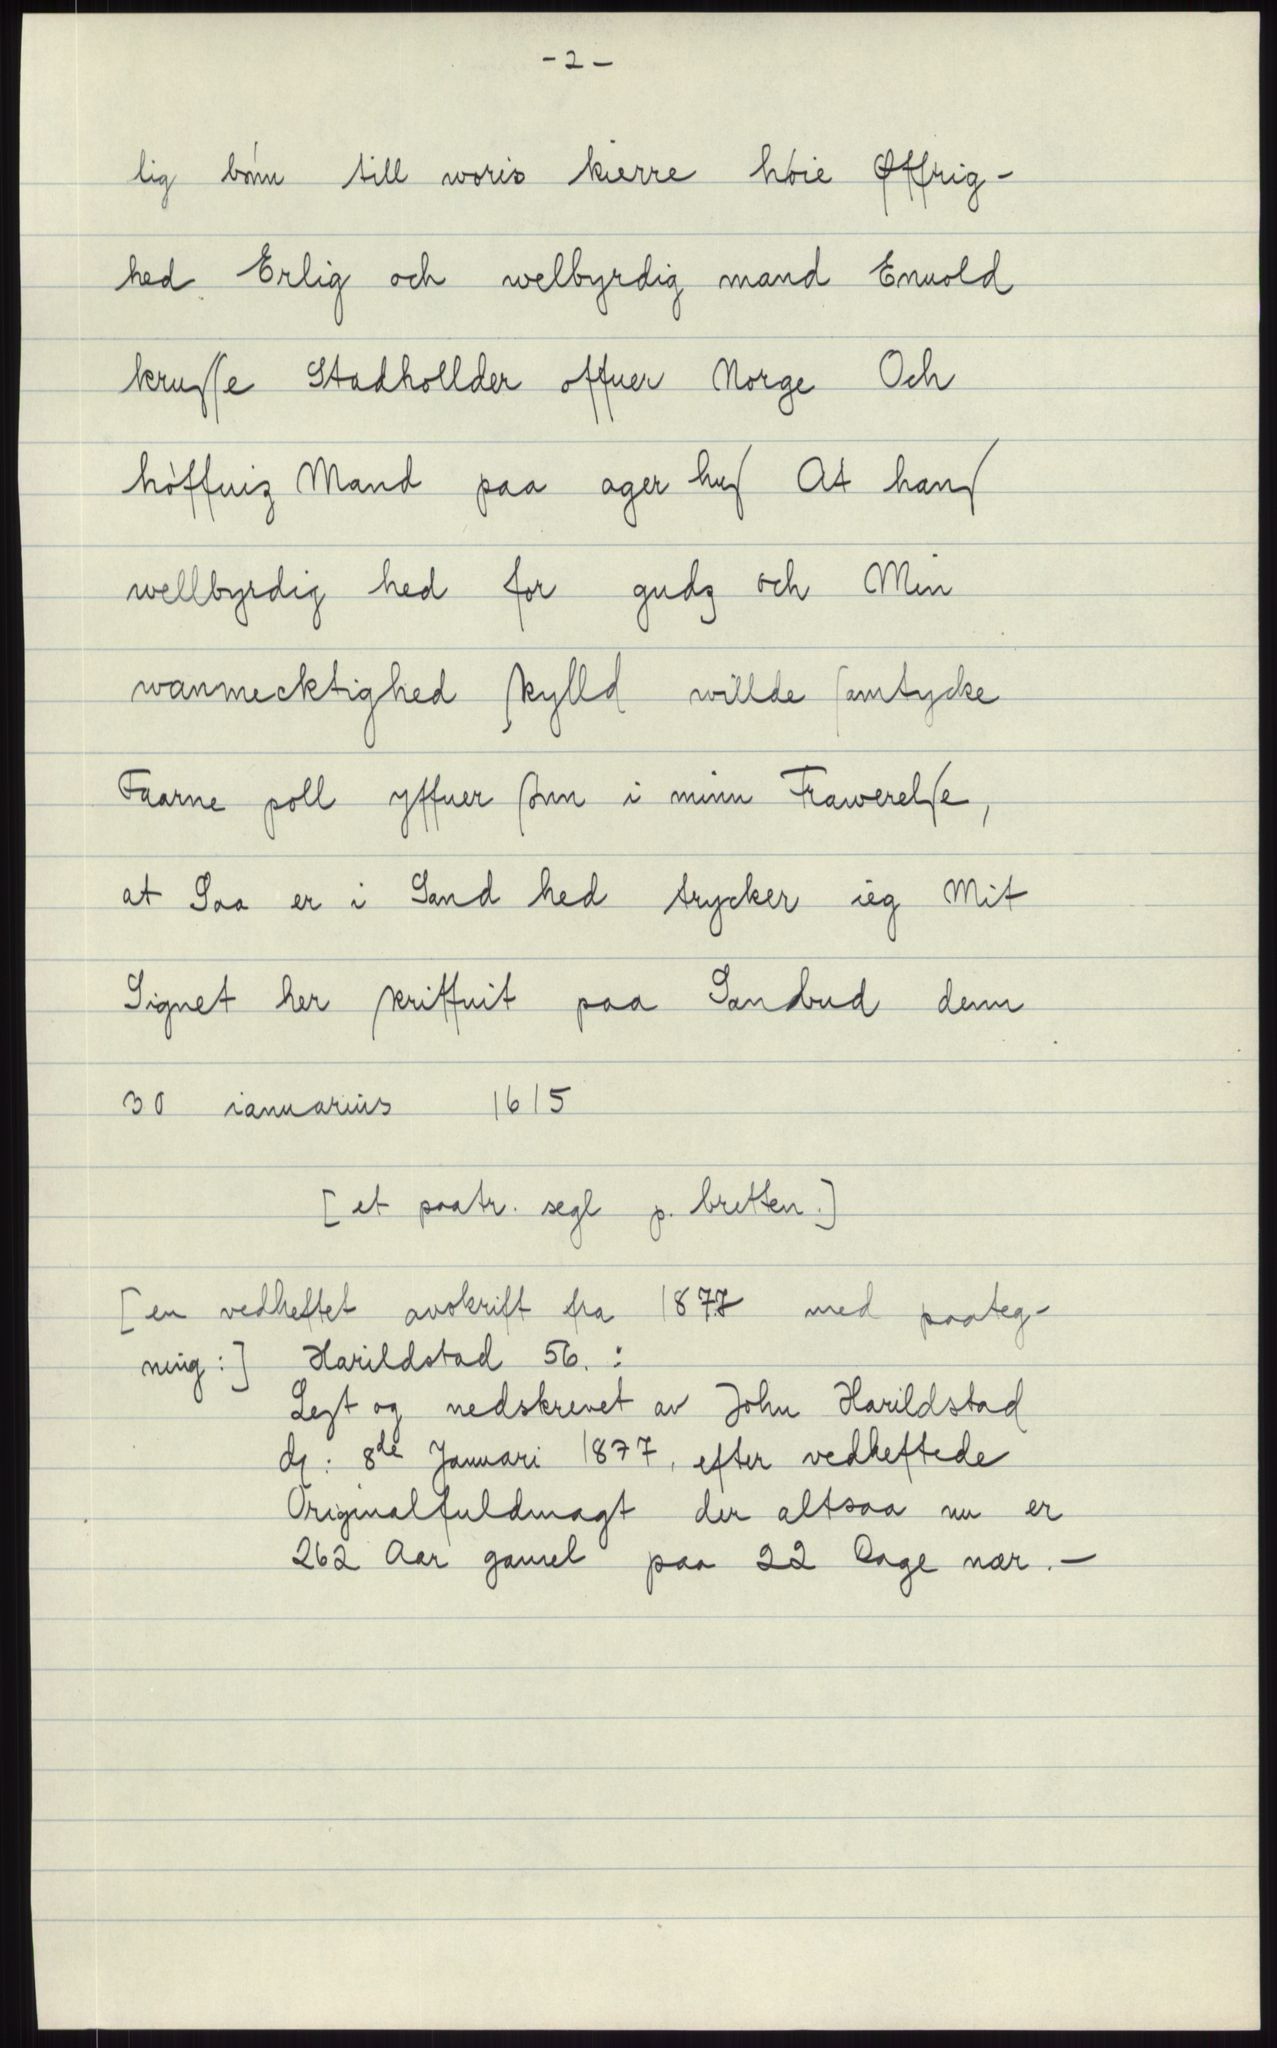 - 2 -
lig bónn till woris kierre hóie Øffrig-
hed Erlig och welbyrdig mand Enuold
kruſſe Stadhollder offuer Norge Och
hóffuiz Mand paa ager huſ At hanſ
wellbyrdig hed for gudz och Min
wanmecktighed ſkylld willde ſamtycke
Faarne poll yffuer ſønn i minn Frawerelſe,
at Saa er i Sand hed trycker ieg Mit
Signet her ſkriffuit paa Sandbud denn
30 ianuarius 1615
[et paatr. segl p. bretten.]
[en vedheftet avskrift fra 1877 med paateg-
ning:] Harildstad 56. :
Lest og nedskrevet av John Harildstad
d. : 8de Januari 1877, efter vedheftede
Originalfuldmagt der altsaa nu er
262 Aar gamel paa 22 Dage nær. —